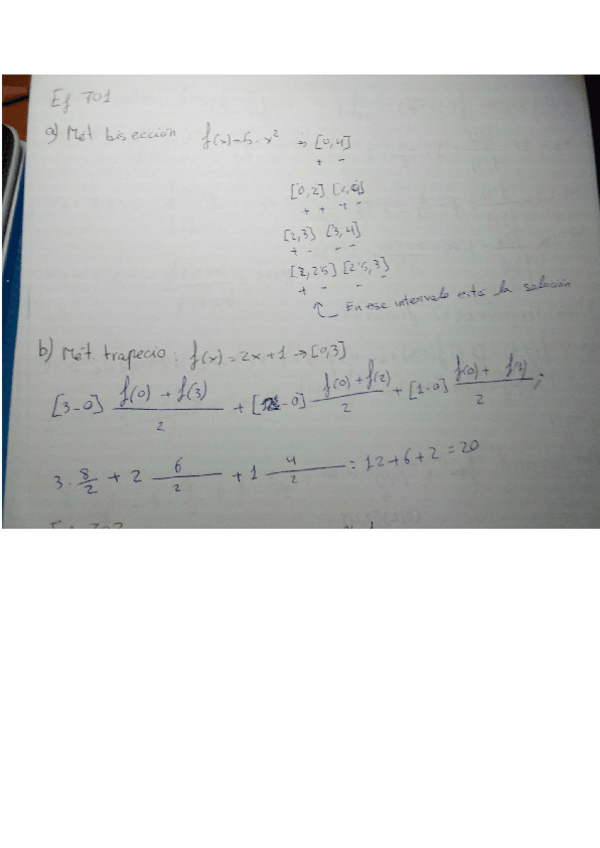 Ej 701
a) Mét bisección: f(x)=5-x² → [0,4]
+ -
[0,2] [2,4]
+ + + -
[2,3] [3,4]
+ - - -
[2,2'5] [2'5,3]
+ - - -
↑ En ese intervalo está la solución
b) Mét. trapecio: f(x)=2x+1 → [0,3]
[3-0] f(0)+f(3)/2 + [2-0] f(0)+f(2)/2 + [1-0] f(0)+f(1)/2;
3·8/2 + 2 6/2 + 1 4/2 = 12+6+2=20